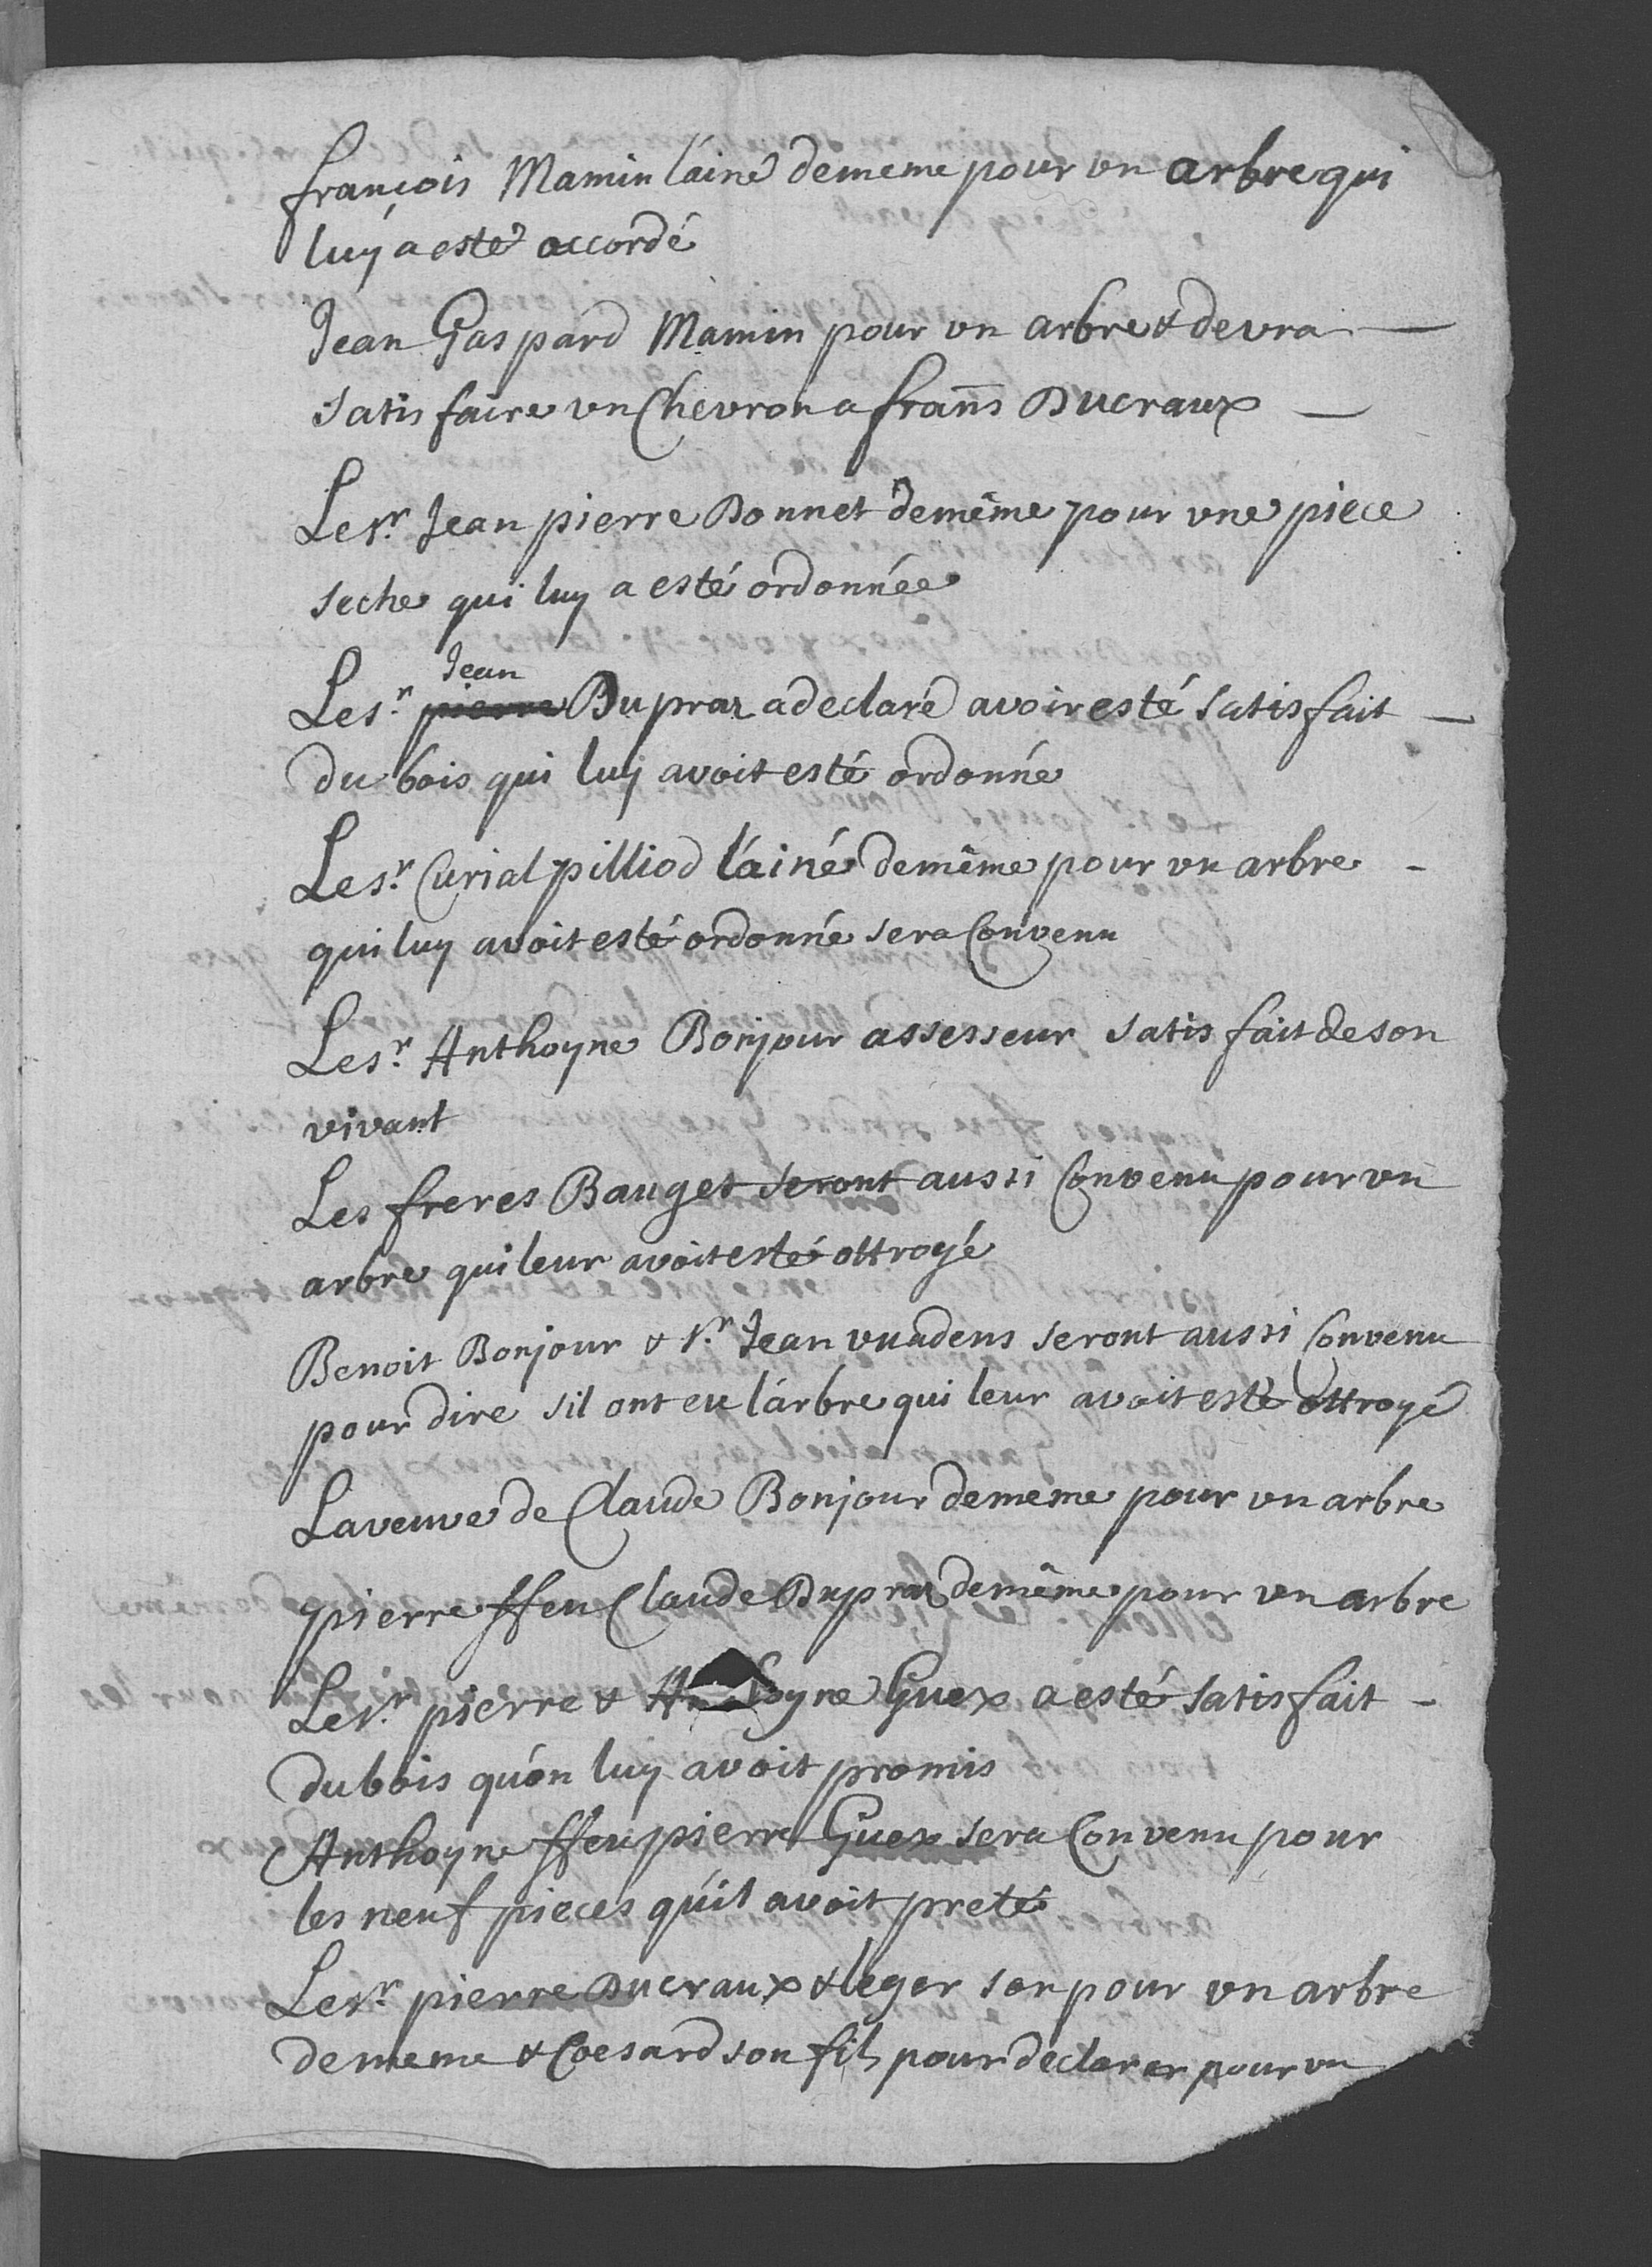 françois Mamin láiné dememe pour vn arbre qui
luÿ a esté accordé
Jean Gaspard Mamin pour vn arbre & devra
satisfaire vn Chevron a frans̄ Ducraux
Le sr. Jean pierre Bonnet demême pour vne piece
seche qui luy a esté ordonnée
Le sr. Jean Dupraz a declaré avoir esté satisfait
du bois qui luÿ avoit esté ordonné
Le sr. Curial pilliod láiné demême pour vn arbre
qui luy avoit esté ordonné sera Convenu
Le sr. Anthoyne Bonjour assesseur satisfait de son
vivant
Les freres Bauget seront aussi Convenu pour vn
arbre qui leur avoit esté ottroyé
Benoit Bonjour & sr. Jean vuadens seront aussi Convenu
pour dire sil ont eu lárbre qui leur avoit esté ottroyé
La veuve de Claude Bonjour dememe pour vn arbre
pierre ffeu Claude Dupraz demême pour vn arbre
Le sr. pierre & Anthoyne Guex a esté satisfait
du bois quón luy avoit promis
Anthoyne ffeu pierre Guex sera Convenu pour
les neuf pieces qúil avoit preté
Le sr. pierre Ducraux & leger son pour vn arbre
dememe & Coesard son fils pour declarer pour vn